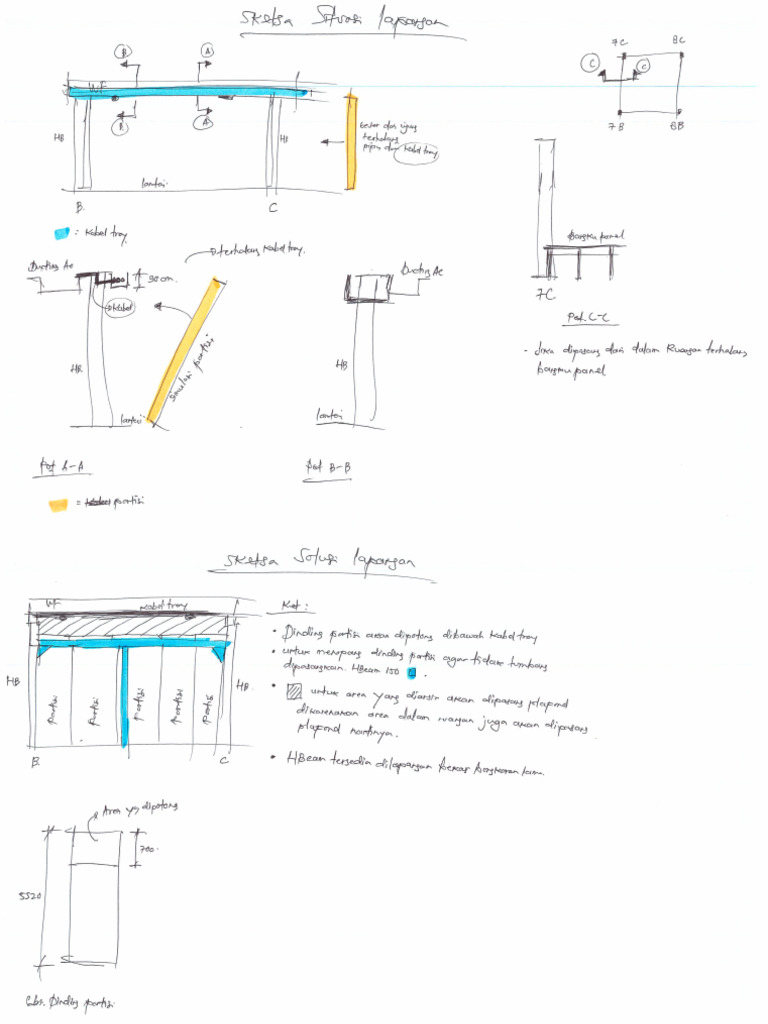 Sketsa Situasi lapangan
B
A
7C
8C
C
C
WF
HB
HB
B
A
7B
8B
terhalang
Kabel tray
lantai
B.
C
= Kabel tray
terhalang Kabel tray.
Ducting Ac
90 cm.
Kabel
HB
Simulasi partisi
lantai
Ducting Ac
HB
lantai
Bangku panel
7C
Pot. C-C
- Jika dipasang dari dalam Ruangan terhalang
bangku panel
Pot A-A
Pot B-B
= partisi
Sketsa Solusi lapangan
WF
Kabel tray
HB
HB.
partisi
partisi
partisi
partisi
partisi
B.
C
Ket :
• Dinding partisi akan dipotong dibawah Kabel tray
• untuk menopang dinding partisi agar tidak tumbang
dipasangkan HBeam 150 .
• untuk area yang diarsir akan dipasang plapond
dikarenakan area dalam ruangan juga akan dipasang
plapond nantinya.
• HBeam tersedia dilapangan bekas bongkaran lama.
Area yg dipotong
700.
5520
Dinding partisi